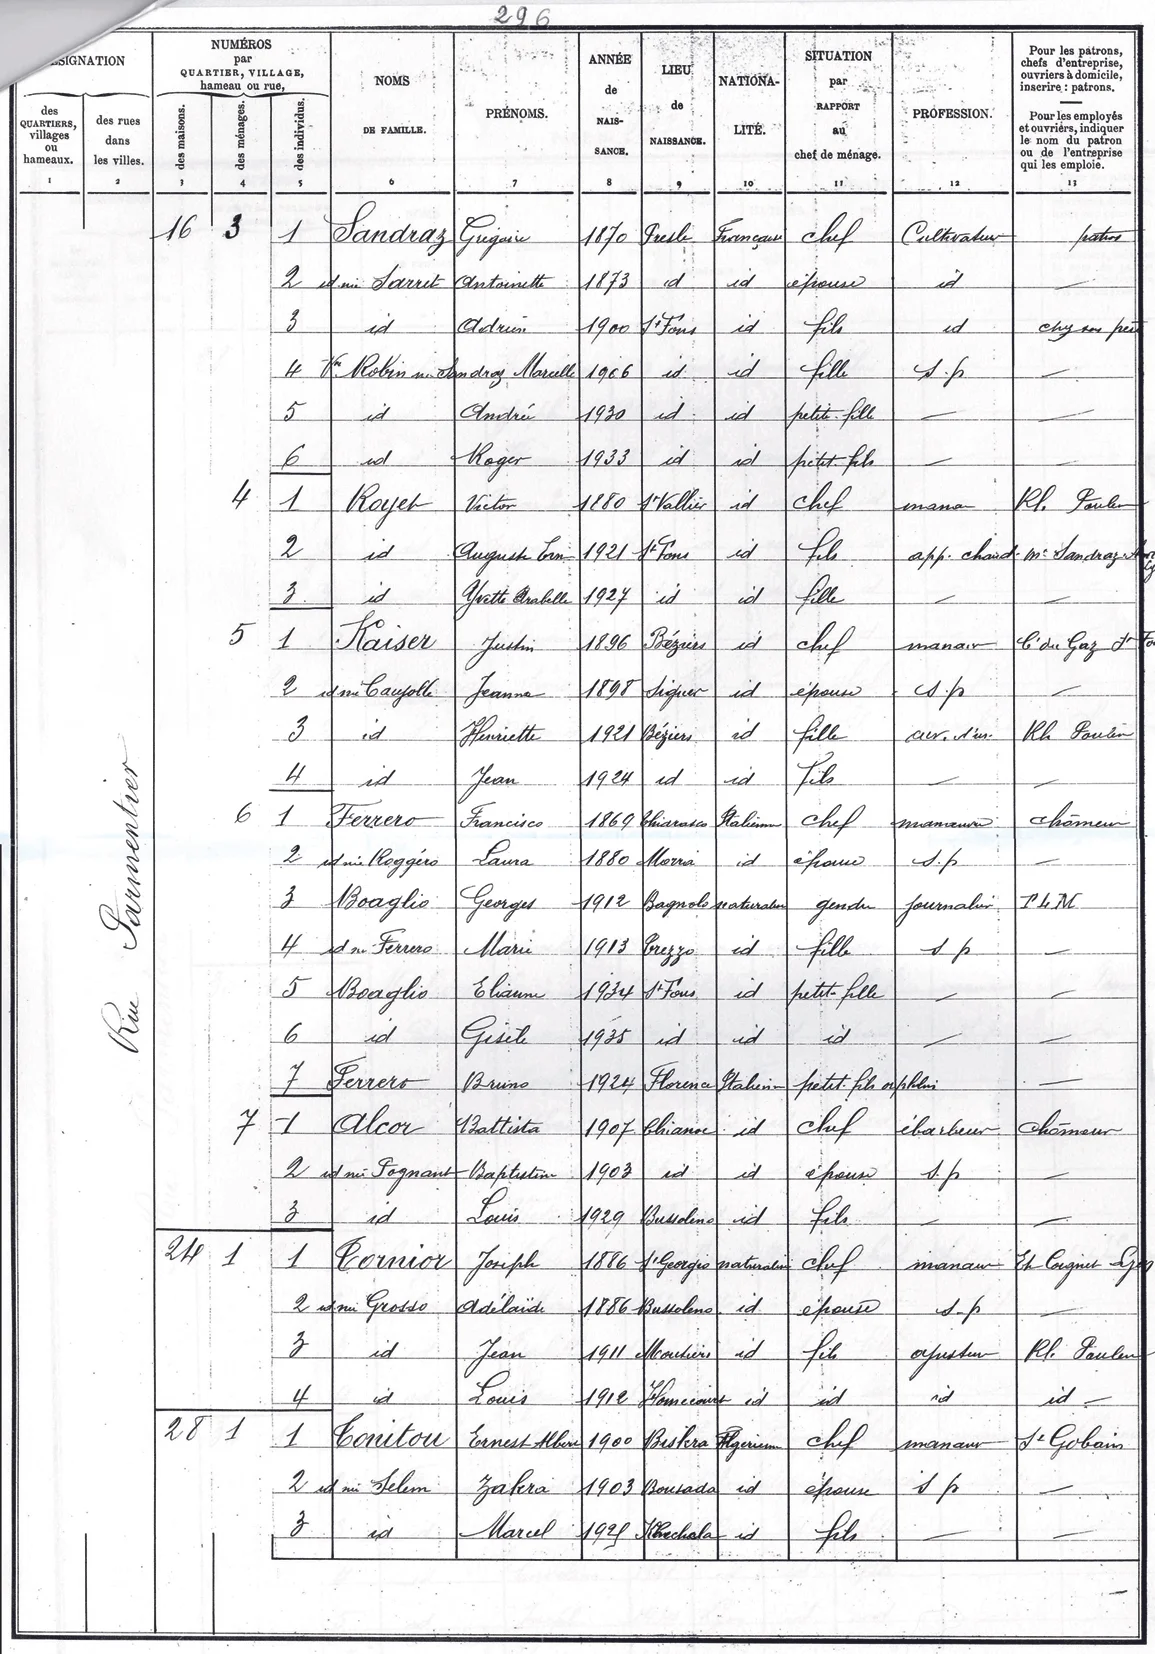 296
DÉSIGNATION
des QUARTIERS, villages ou hameaux.
des rues dans les villes.
NUMÉROS par QUARTIER, VILLAGE, hameau ou rue,
des maisons.
des ménages.
des individus.
NOMS DE FAMILLE.
PRÉNOMS.
ANNÉE de NAIS-SANCE.
LIEU de NAISSANCE.
NATIONA-LITÉ.
SITUATION par RAPPORT au chef de ménage.
PROFESSION.
Pour les patrons, chefs d'entreprise, ouvriers à domicile, inscrire : patrons.
Pour les employés et ouvriers, indiquer le nom du patron ou de l'entreprise qui les emploie.
1 2 3 4 5 6 7 8 9 10 11 12 13
Rue Parmentier
16 3 1 Sandraz Grégoire 1870 Presle Française chef Cultivateur patron
2 id née Sarret Antoinette 1873 id id épouse id —
3 id Adrien 1900 St Fons id fils id chez son père
4 Vve Robin née Sandraz Marcelle 1906 id id fille s.p —
5 id André 1930 id id petit-fille — —
6 id Roger 1933 id id petit-fils — —
4 1 Royet Victor 1880 St Vallier id chef manœu Rh. Poulen
2 id Auguste 1921 St Fons id fils app. chaud. Mr Sandraz
3 id Yvette Arabelle 1927 id id fille — —
5 1 Kaiser Justin 1896 Béziers id chef manœuv Cie du Gaz St Fo
2 id née Caujolle Jeanne 1898 Siguer id épouse s.p —
3 id Henriette 1921 Béziers id fille ouv. d'us. Rh. Poulen
4 id Jean 1924 id id fils — —
6 1 Ferrero Francisco 1869 Chiarasco Italienne chef manœuvre chômeur
2 id née Roggéro Laura 1880 Morra id épouse s.p —
3 Boaglio Georges 1912 Bagnolo naturalisé gendre journalier PLM
4 id née Ferrero Marie 1913 Prezzo id fille s p —
5 Boaglio Elianne 1934 St Fons id petit-fille — —
6 id Gisèle 1935 id id id — —
7 Ferrero Bruno 1924 Florence Italienne petit-fils orphelin —
7 1 Alcor Battista 1907 Chianoc id chef ébarbeur chômeur
2 id née Pognant Baptistine 1903 id id épouse s.p —
3 id Louis 1929 Bussoleno id fils — —
24 1 1 Cornior Joseph 1886 St Georgio naturalisé chef manœuv Et Coignet Lyon
2 id née Grosso Adélaïde 1886 Bussoleno id épouse s.p —
3 id Jean 1911 Moutiers id fils ajusteur Rh. Poulen
4 id Louis 1912 Homecourt id id id id —
28 1 1 Conitou Ernest Albert 1900 Biskra Algérienne chef manœuv St Gobain
2 id née Selem Zahra 1903 Bousada id épouse s p —
3 id Marcel Khenchela id fils — —